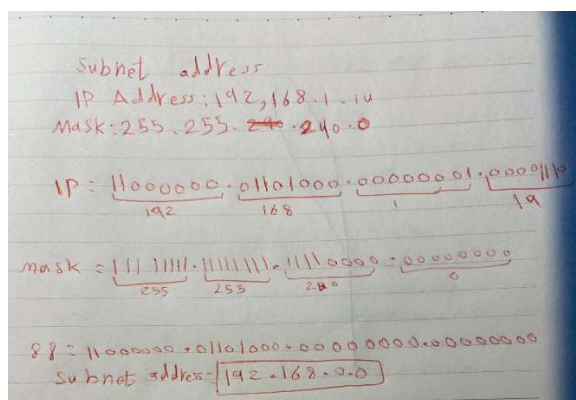 Subnet address
IP Address: 192,168.1.14
Mask: 255.255.240.0
IP = 11000000.01101000.00000001.00001110
192 168 1 19
mask = 11111111.11111111.11110000.00000000
255 255 240 0
88 = 11000000.01101000.00000000.00000000
Subnet address = 192.168.0.0